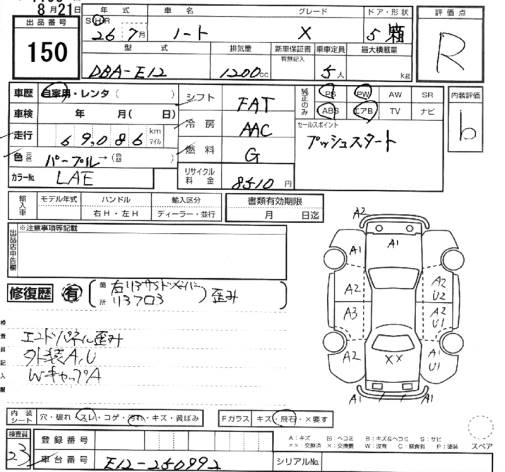 8月21日
出品番号
150
年式 車名 グレード ドア・形状
S H R
26年7月 ノート X 5 箱
型式 排気量 新車保証書 乗車定員 最大積載量
有無記入
DBA-E12 1200cc 5人 kg
評価点
R
内装評価
b
車歴 自家用・レンタ( )
車検 年 月( 日)
走行 69,086 km マイル
色 パープル→( )
カラーNo. LAE
シフト FAT
冷房 AAC
燃料 G
リサイクル料金 8510円
PS PW AW SR
ABS エアB TV ナビ
セールスポイント
プッシュスタート
輸入車 モデル年式 ハンドル 輸入区分
右H・左H ディーラー・並行
書類有効期限
月 日迄
出品店申告欄
※注意事項等記載
修復歴 有
箇所
歪み
検査員記入欄
エンドパネル歪み
外装A,U
WキャップA
A2
A1 A1
A2 A2
U2
A3 A2
U1
A2 XX A1
U1
A2
内装シート 穴・破れ・スレ・コゲ・汚れ・キズ・黄ばみ
Fガラス キズ・飛石・×要す
検査員
23
登録番号
車台番号 E12-250992
シリアルNo.
A:キズ U:ヘコミ B:キズ&ヘコミ S:サビ
スペア